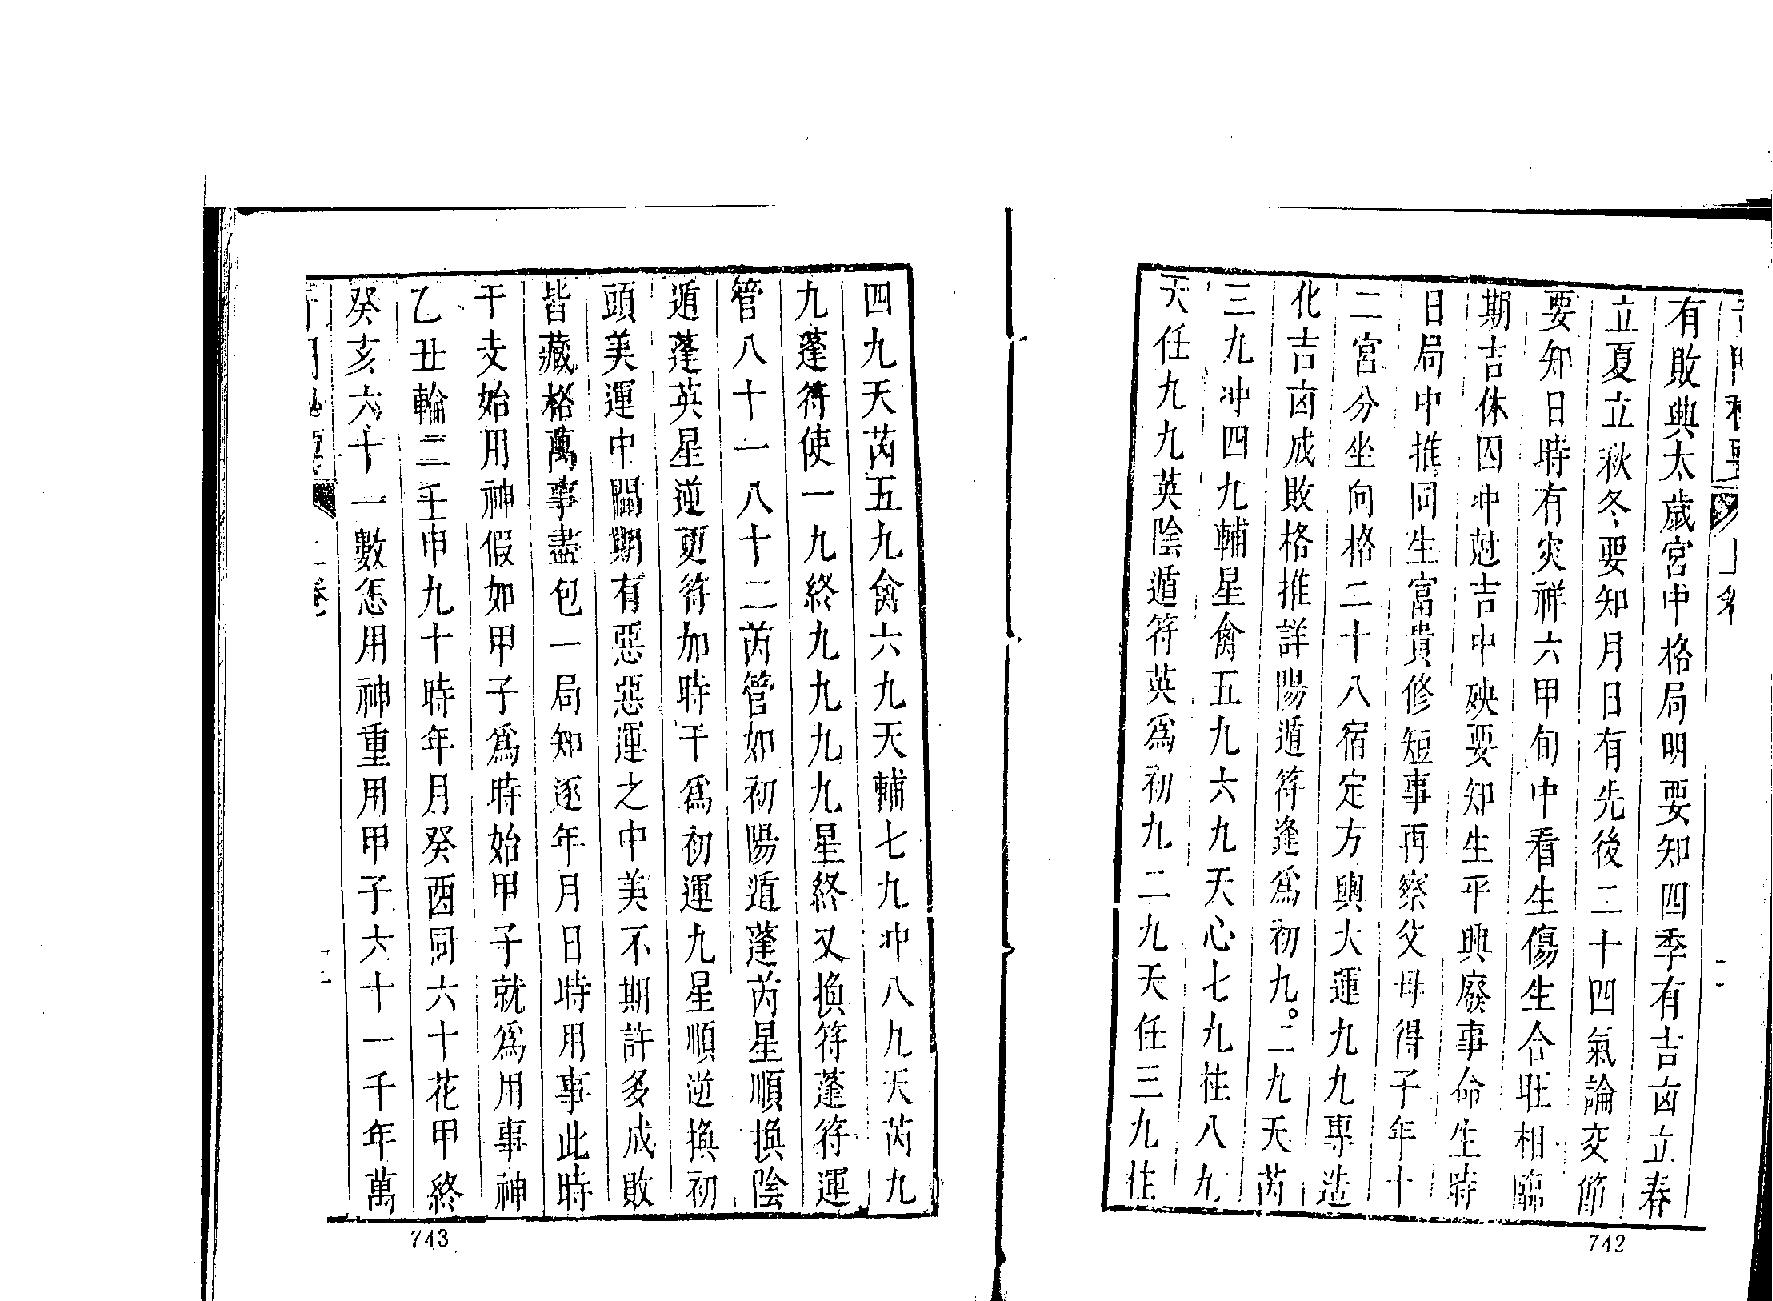 有敗與太歲宮中格局明要知四季有吉凶立春
立夏立秋冬要知月日有先後二十四氣論交節
要知日時有灾祥六甲旬中看生傷生合旺相臨
期吉休囚冲尅吉中殃要知生平興廢事命生時
日局中推同生富貴修短事再察父母得子年十
二宮分坐向格二十八宿定方輿大運九九專造
化吉凶成敗格推詳陽遁符逢爲初九二九天芮
三九冲四九輔星禽五九六九天心七九柱八九
天任九九英陰遁符英爲初九二九天任三九柱
742
四九天芮五九禽六九天輔七九冲八九天芮九
九蓬符使一九終九九九九星終又換符蓬符運
管八十一八十二芮管如初陽遁蓬芮星順換陰
遁蓬英星逆更符加時干爲初運九星順逆換初
頭美運中關期有惡惡運之中美不期許多成敗
皆藏格萬事盡包一局知逐年月日時用事此時
干支始用神假如甲子爲時始甲子就爲用事神
乙丑輪二壬申九十時年月癸酉同六十花甲終
癸亥六十一數怎用神重用甲子六十一千年萬
743